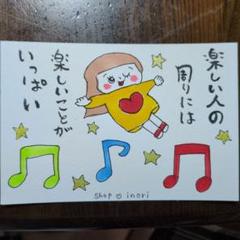 楽しい人の
周りには
楽しいことが
いっぱい
shop inori